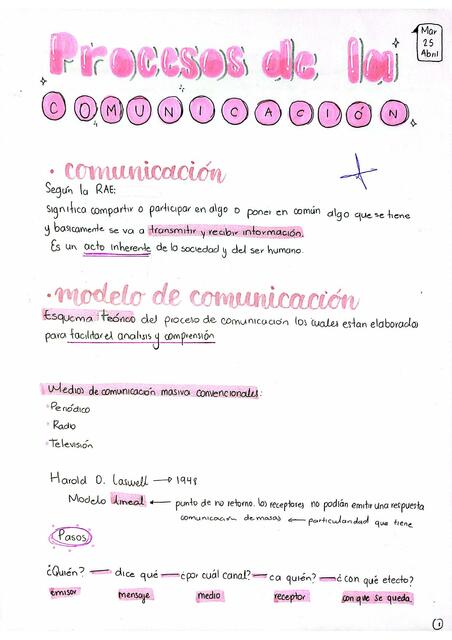 Mar
25
Abril
Procesos de la
COMUNICACIÓN
• comunicación
Según la RAE:
significa compartir o participar en algo o poner en común algo que se tiene
y basicamente se va a transmitir y recibir información.
Es un acto inherente de la sociedad y del ser humano.
• modelo de comunicación
Esquema teórico del proceso de comunicación los cuales estan elaborados
para facilitar el analisis y comprensión
Medios de comunicación masiva convencionales:
• Periódico
• Radio
• Televisión
Harold D. Laswell → 1948
Modelo lineal ← punto de no retorno. los receptores no podían emitir una respuesta
comunicación de masas ← particularidad que tiene
Pasos
¿Quién? — dice qué — ¿por cuál canal? — ¿a quién? — ¿con qué efecto?
emisor mensaje medio receptor con que se queda.
1